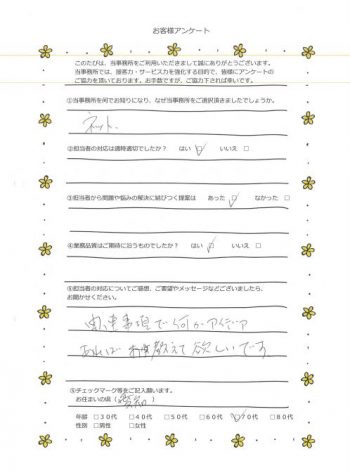 お客様アンケート
このたびは、当事務所をご利用いただきまして誠にありがとうございます。
当事務所では、接客力・サービス力を強化する目的で、皆様にアンケートの
ご協力を頂いております。お手数ですが、ご協力下されば幸いです。
①当事務所を何でお知りになり、なぜ当事務所をご選択頂きましたでしょうか。
ネット、
②担当者の対応は適時適切でしたか？ はい ☑ いいえ □
③担当者から問題や悩みの解決に結びつく提案は あった ☑ なかった □
④業務品質はご期待に沿うものでしたか？ はい ☑ いいえ □
⑤担当者の対応についてご感想、ご要望やメッセージなどございましたら、
お聞かせください。
関連事項で何かアイデア
あれば お教えて欲しいです
⑤チェックマーク等をご記入願います。
お住まいの県（愛知）
年齢 □30代 □40代 □50代 □60代 ☑70代 □80代
性別 □男性 □女性